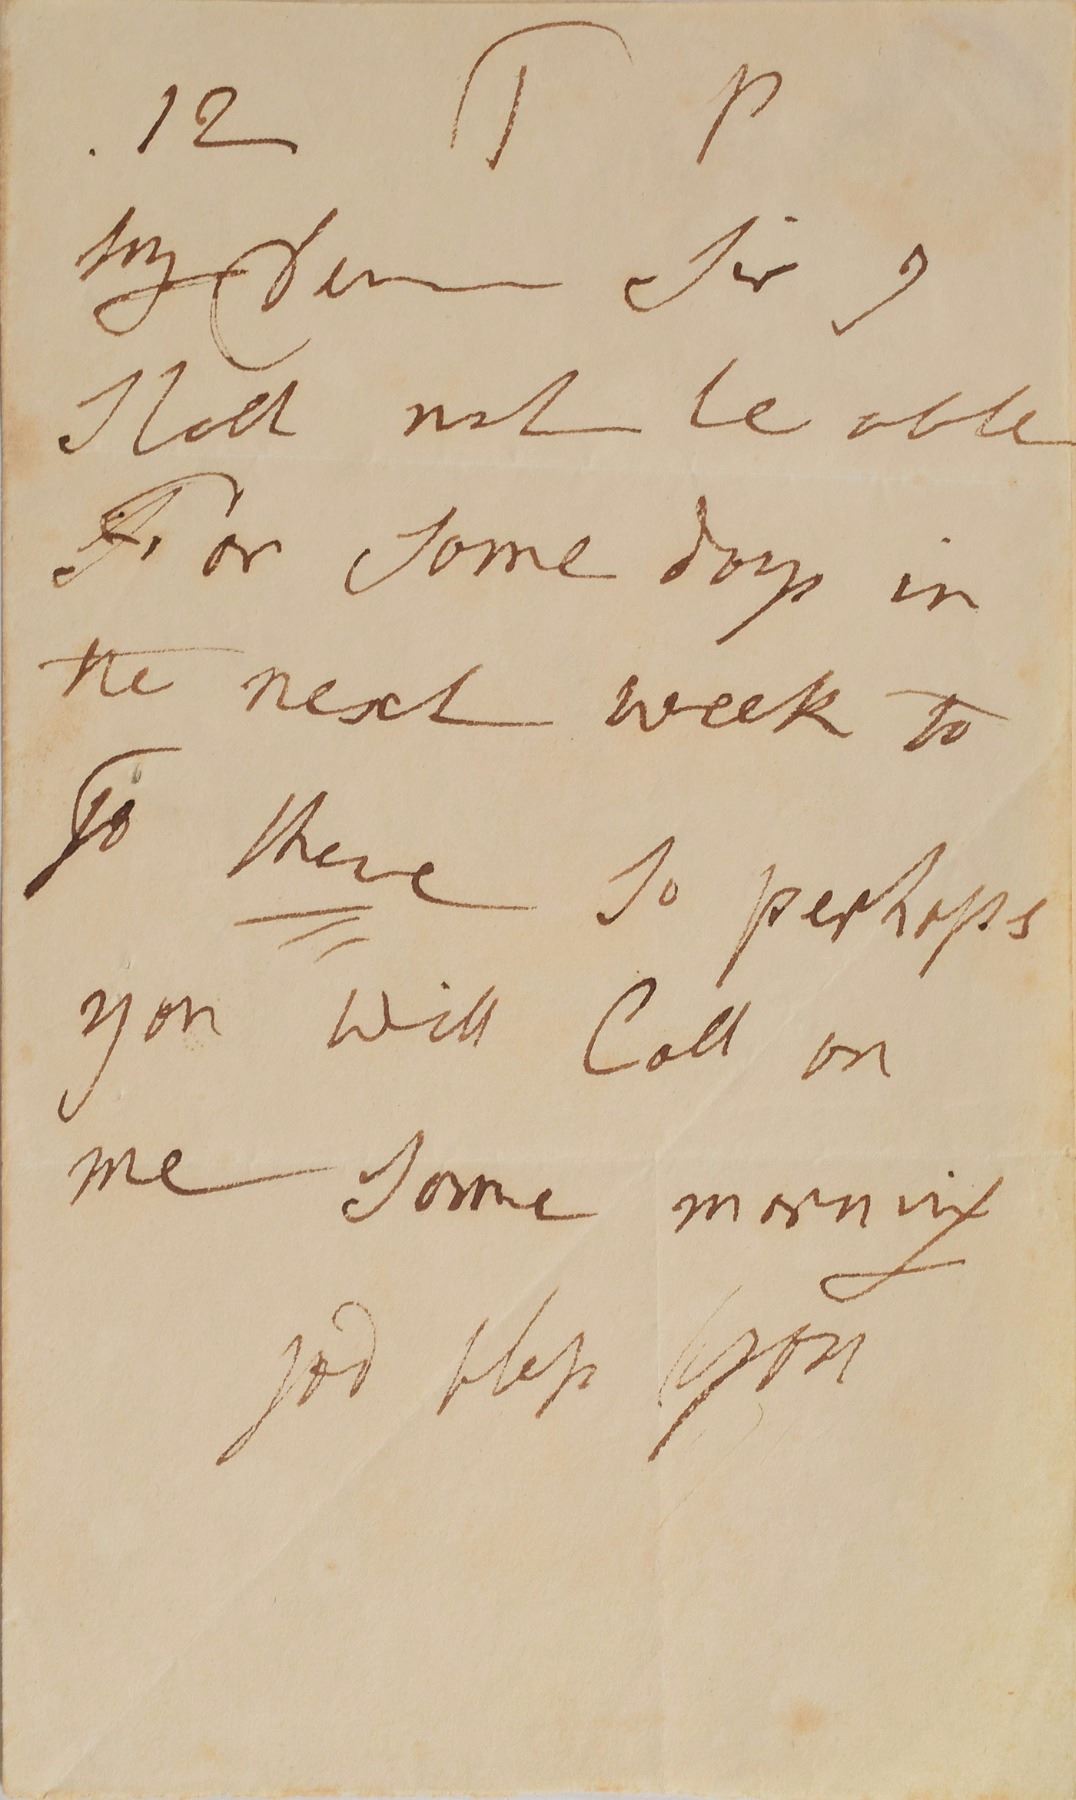 .12 T P
My Dear Sir I
Shall not be able
For some days in
the next week to
go there so perhaps
you will Call on
me some morning
god bless you